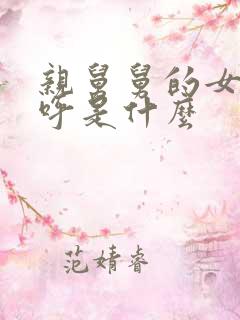 親舅舅的女
呼是什麼
范婧睿